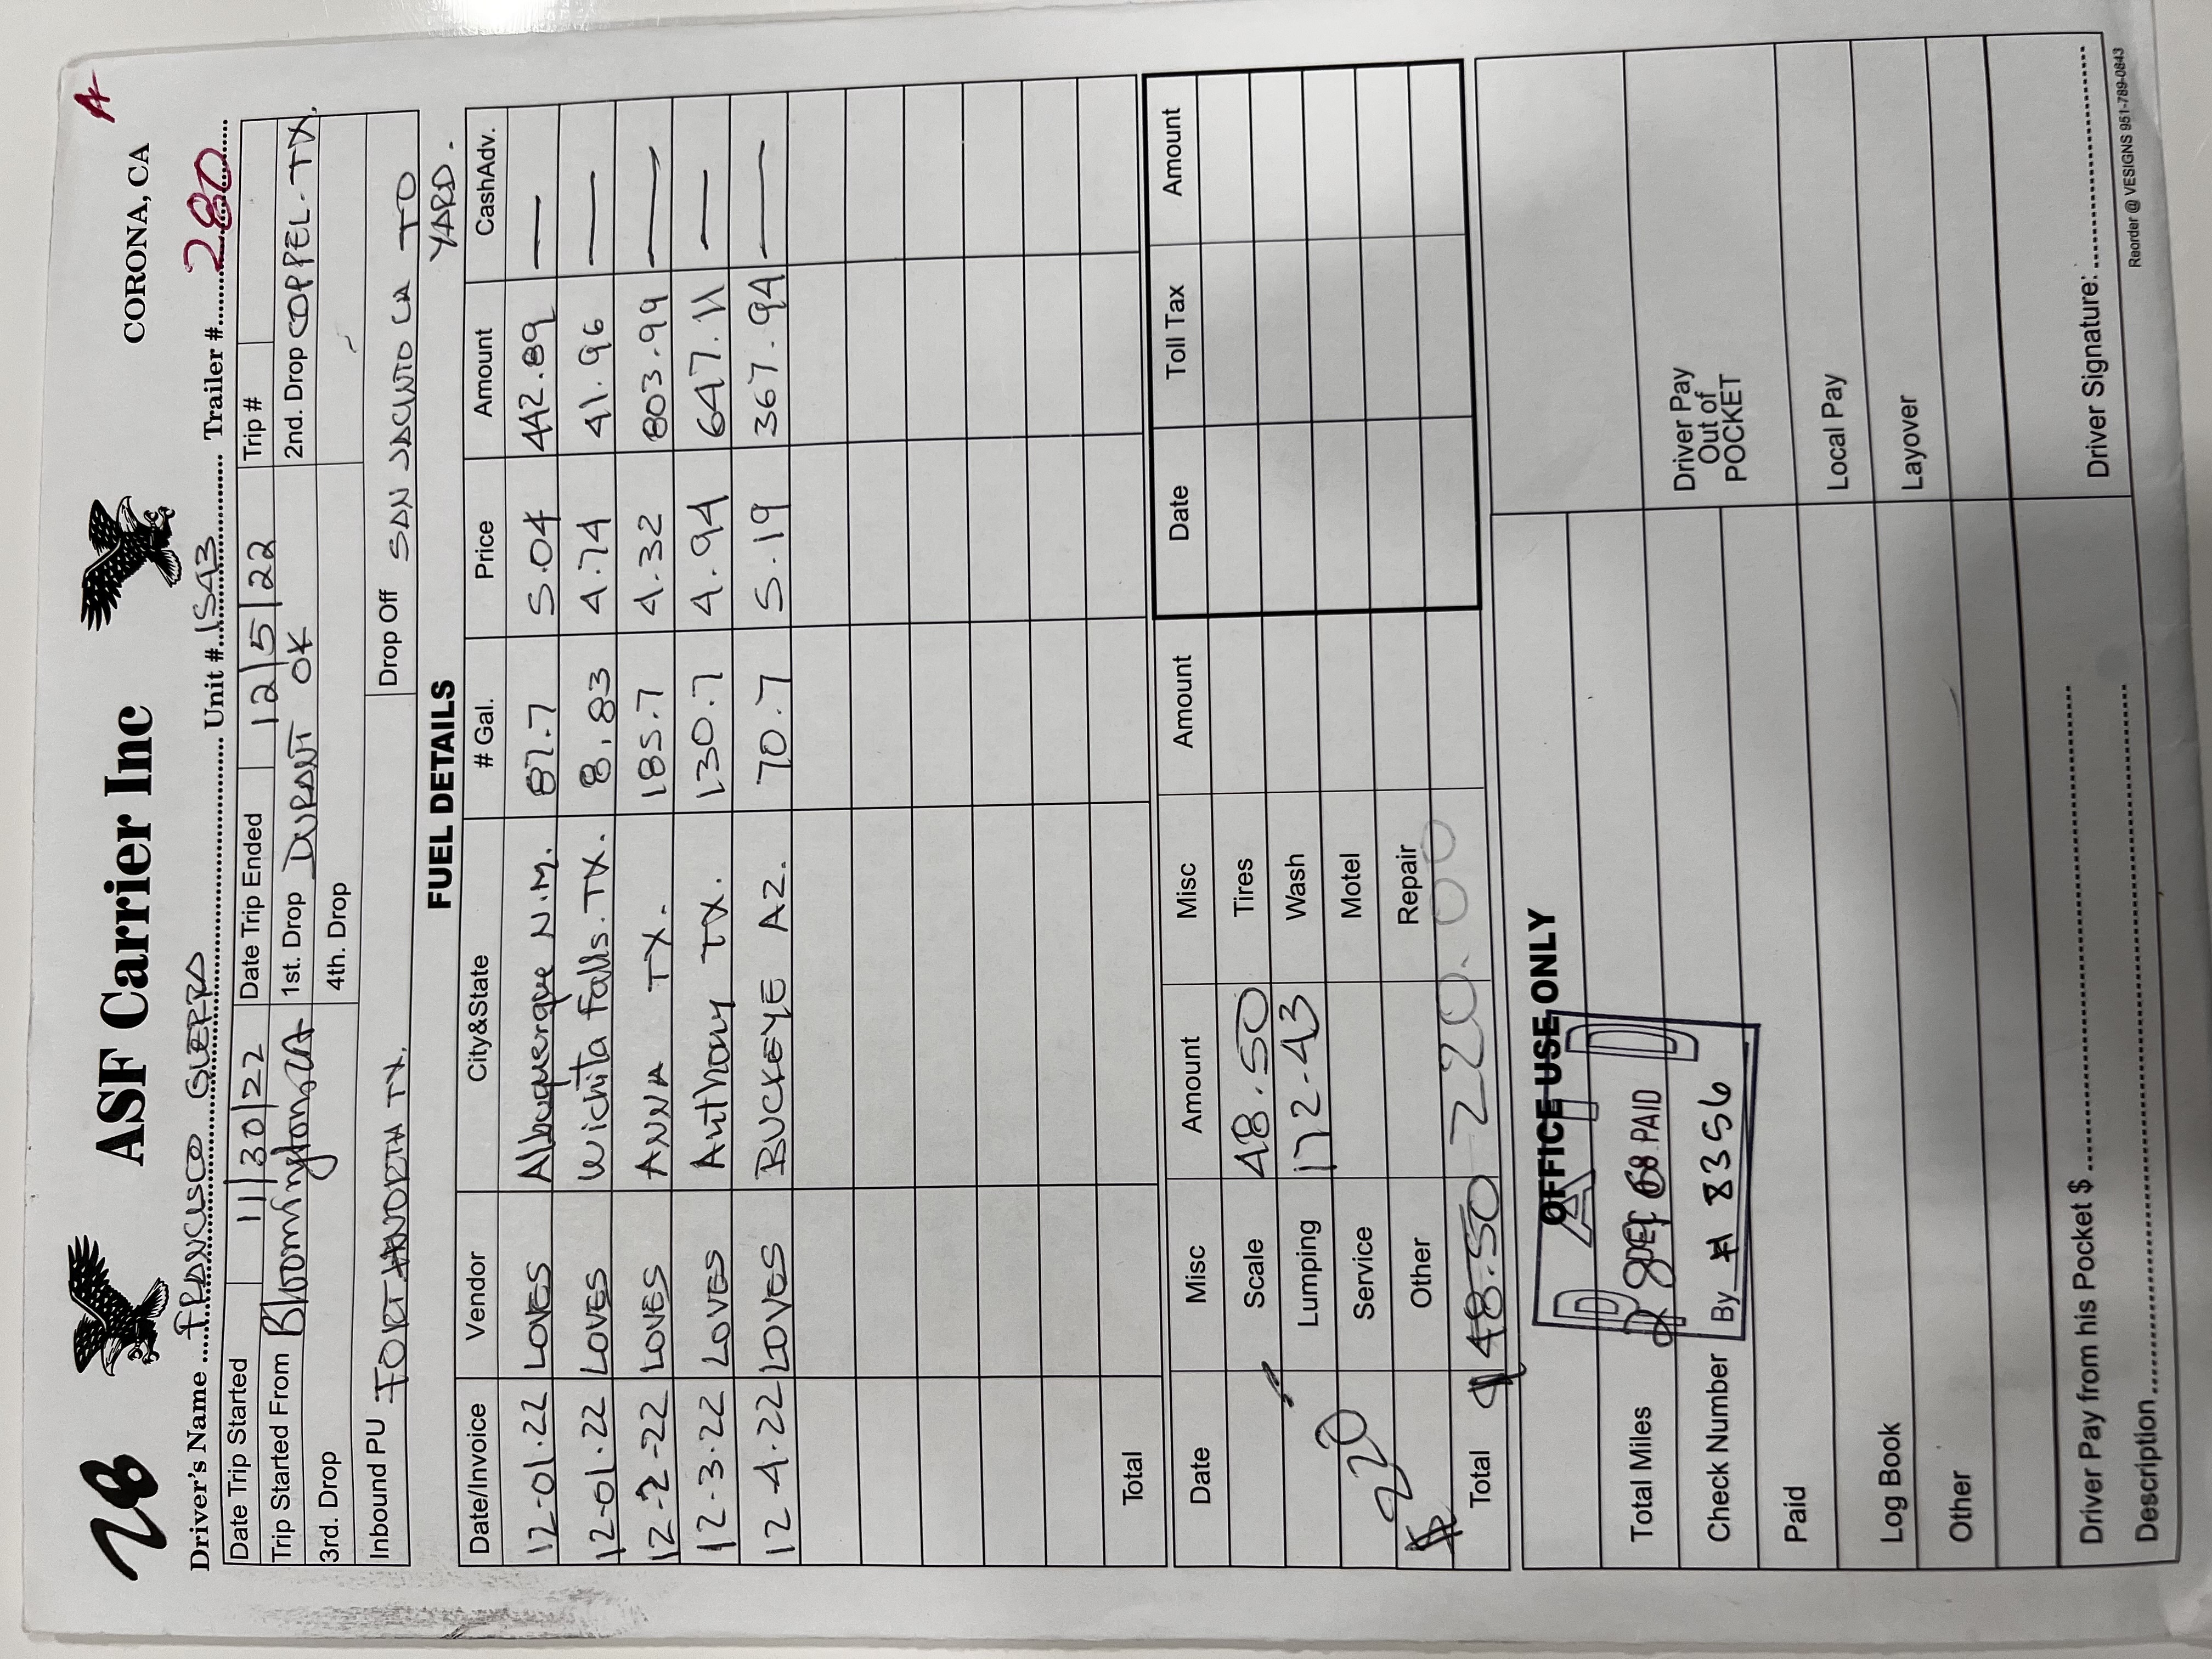 28 ASF Carrier Inc CORONA, CA A
Driver's Name FRANCISCO GUERRA Unit # 1543 Trailer # 280
Date Trip Started 11/30/22 Date Trip Ended 12/5/22 Trip #
Trip Started From Bloomington, CA 1st. Drop DURANT OK 2nd. Drop COPPEL. TX.
3rd. Drop 4th. Drop
Inbound PU FORT WORTH TX. Drop Off SAN JACINTO CA TO
YARD.
FUEL DETAILS
Date/Invoice Vendor City&State # Gal. Price Amount CashAdv.
12-01.22 LOVES Albuquerque N.M. 87.7 5.04 442.89 —
12-01.22 LOVES Wichita Falls. TX. 8.83 4.74 41.96 —
12-2-22 LOVES ANNA TX. 185.7 4.32 803.99 —
12-3.22 LOVES Anthony TX. 130.7 4.94 647.11 —
12-4.22 LOVES BUCKEYE AZ. 70.7 5.19 367.94 —
Total
Date Misc Amount Misc Amount Date Toll Tax Amount
Scale 48.50 Tires
Lumping 172-43 Wash
$220 Service Motel
Other Repair
Total $48.50 220.00
OFFICE USE ONLY
PAID
Total Miles DEC 08 PAID
Check Number By # 8356
Driver Pay
Out of
POCKET
Paid
Local Pay
Log Book
Layover
Other
Driver Pay from his Pocket $
Driver Signature:
Description
Reorder @ VESIGNS 951-789-0843